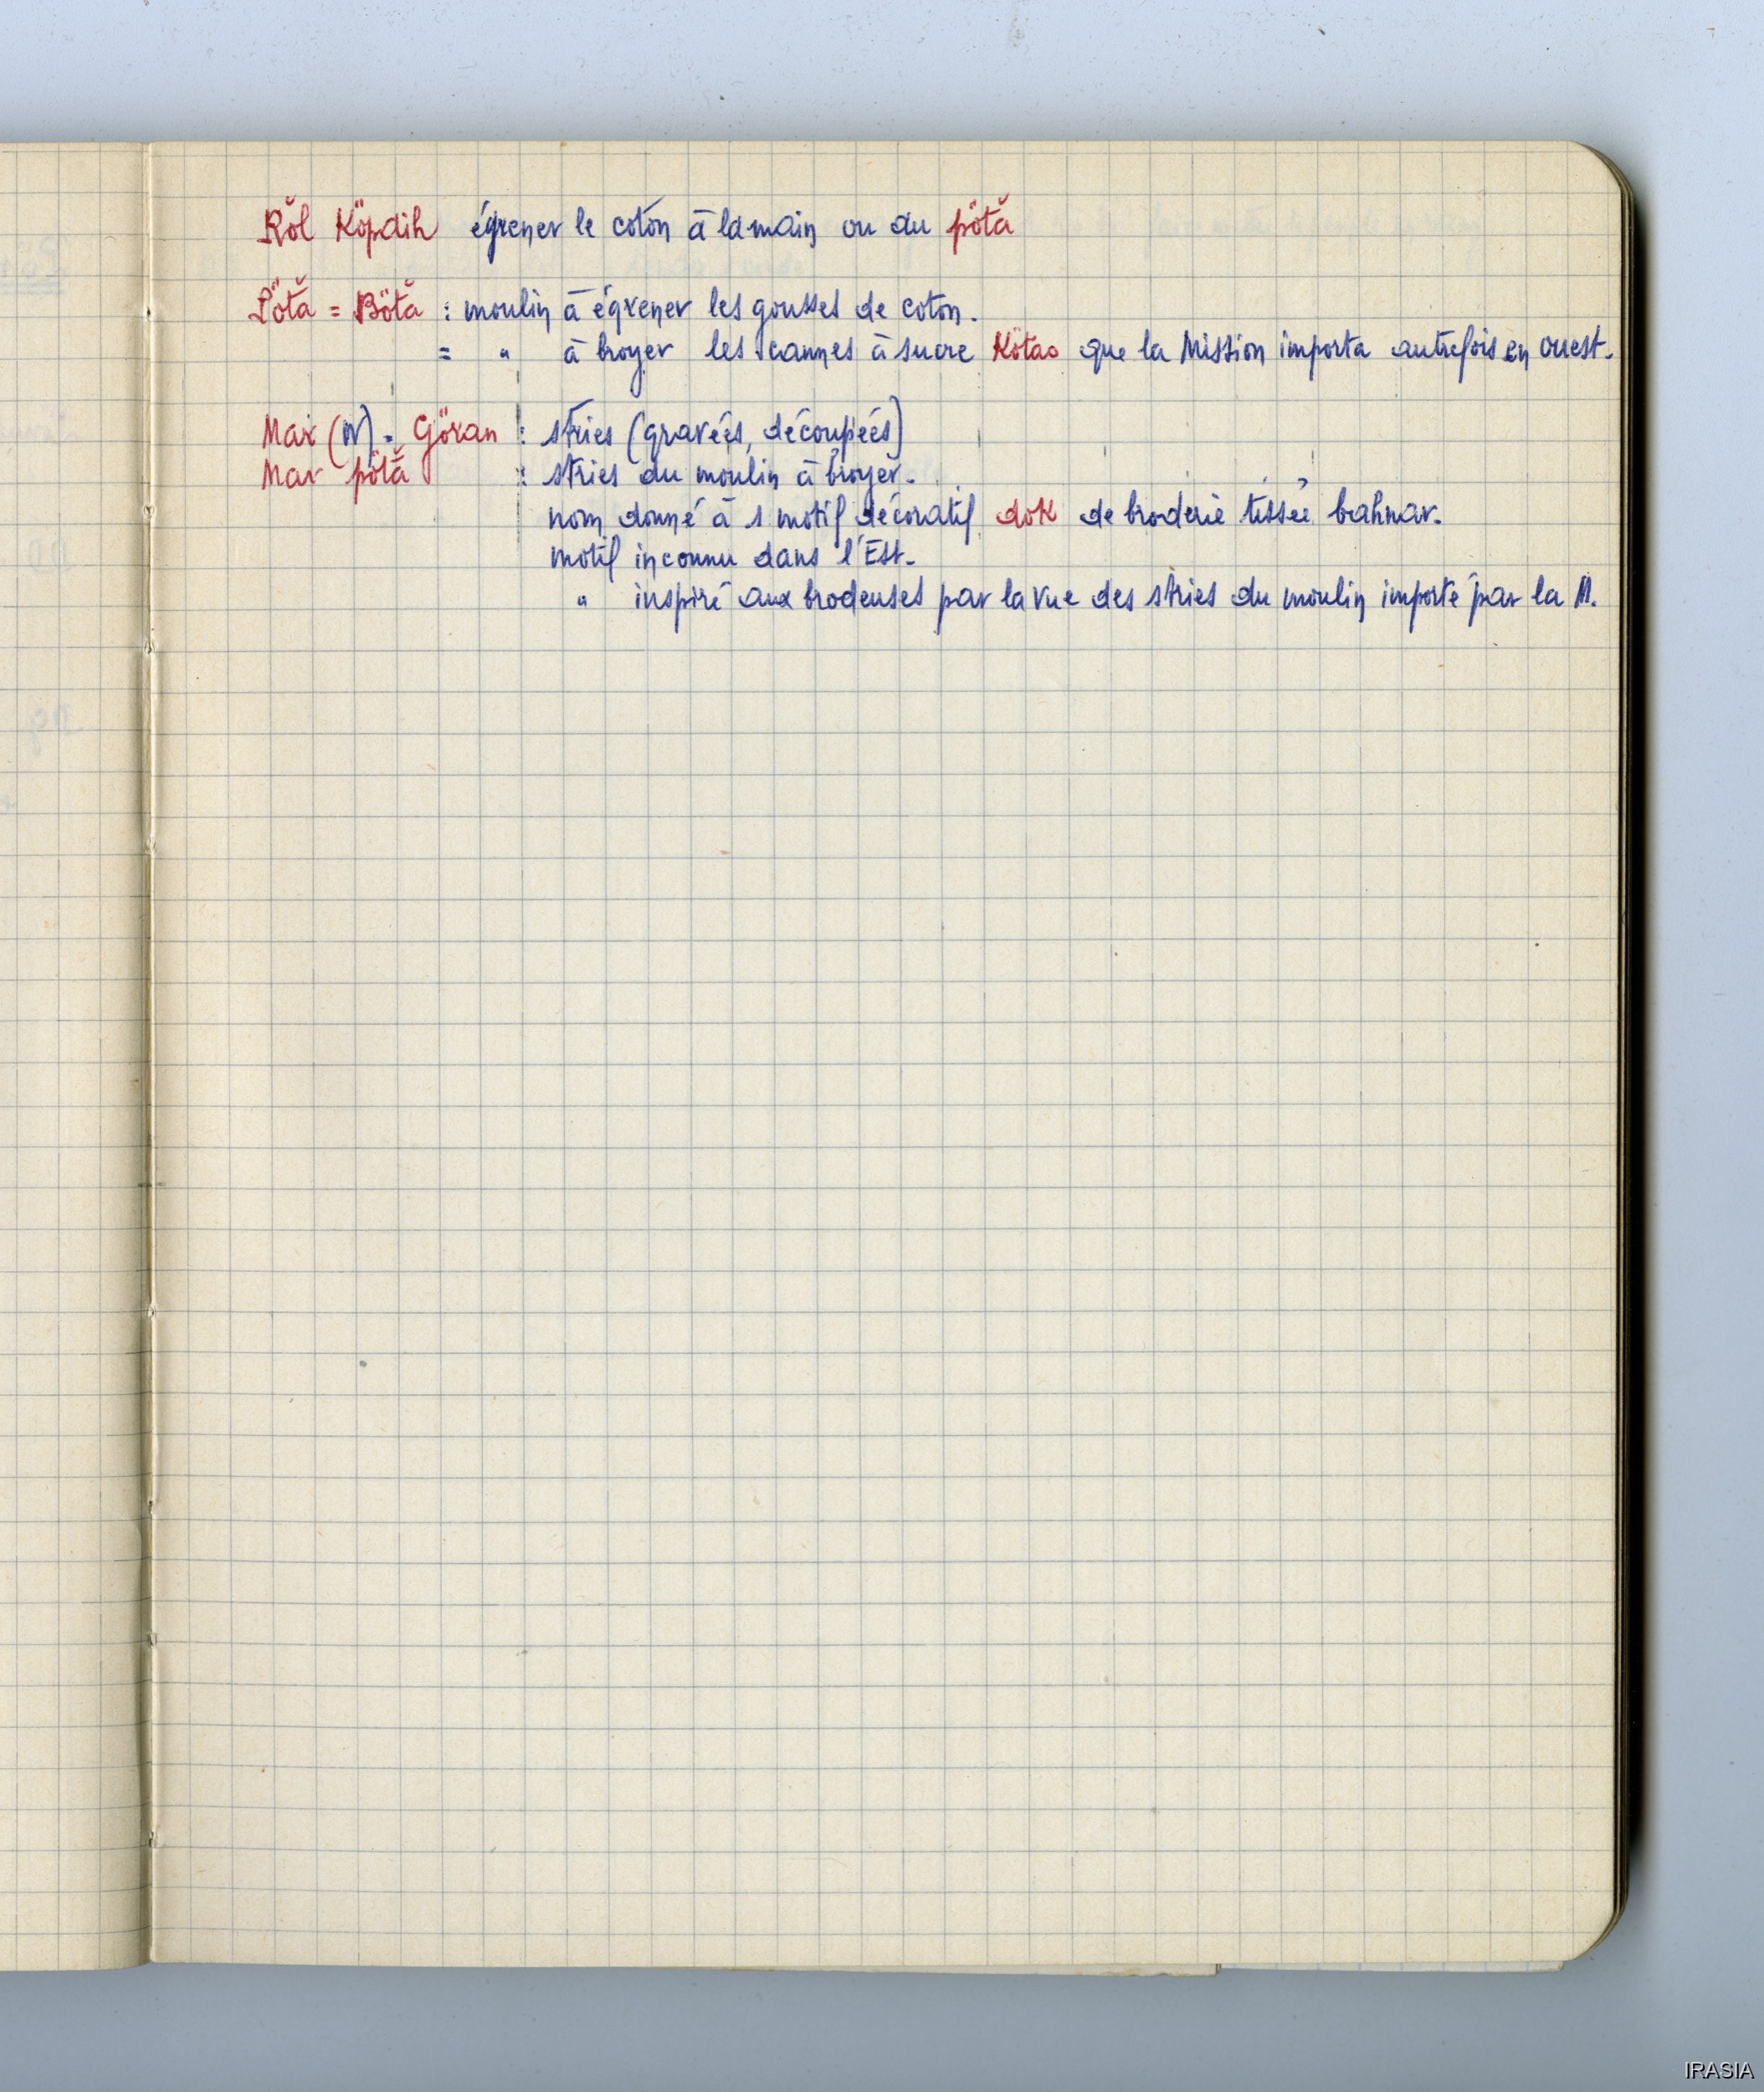 Rŏl Köpaih égrener le coton à la main ou au pötă
Pötă = Bötă : moulin à égrener les gousses de coton.
= " à broyer les cannes à sucre Kötao que la Mission importa autrefois en Ouest.
Mar (N). Göran : stries (gravées, découpées)
Mar pötă : stries du moulin à broyer.
nom donné à 1 motif décoratif dok de broderie tissée bahnar.
motif inconnu dans l'Est.
" inspiré aux brodeuses par la vue des stries du moulin importé par la M.
IRASIA